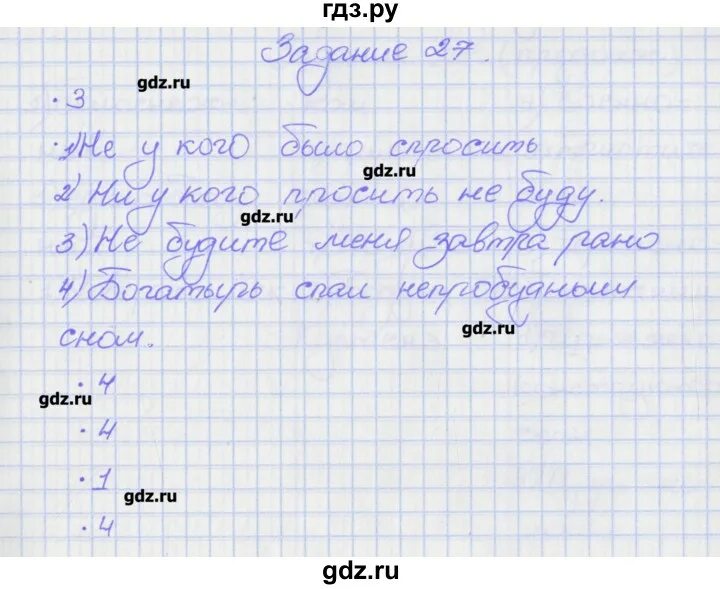 гдз.ру
Задание 27.
gdz.ru
· 3
· 1) Не у кого было спросить
gdz.ru
2) Ни у кого просить не буду.
gdz.ru
3) Не будите меня завтра рано
4) Богатырь спал непробудным
gdz.ru
сном.
· 4
gdz.ru
· 4
· 1
gdz.ru
· 4
gdz.ru